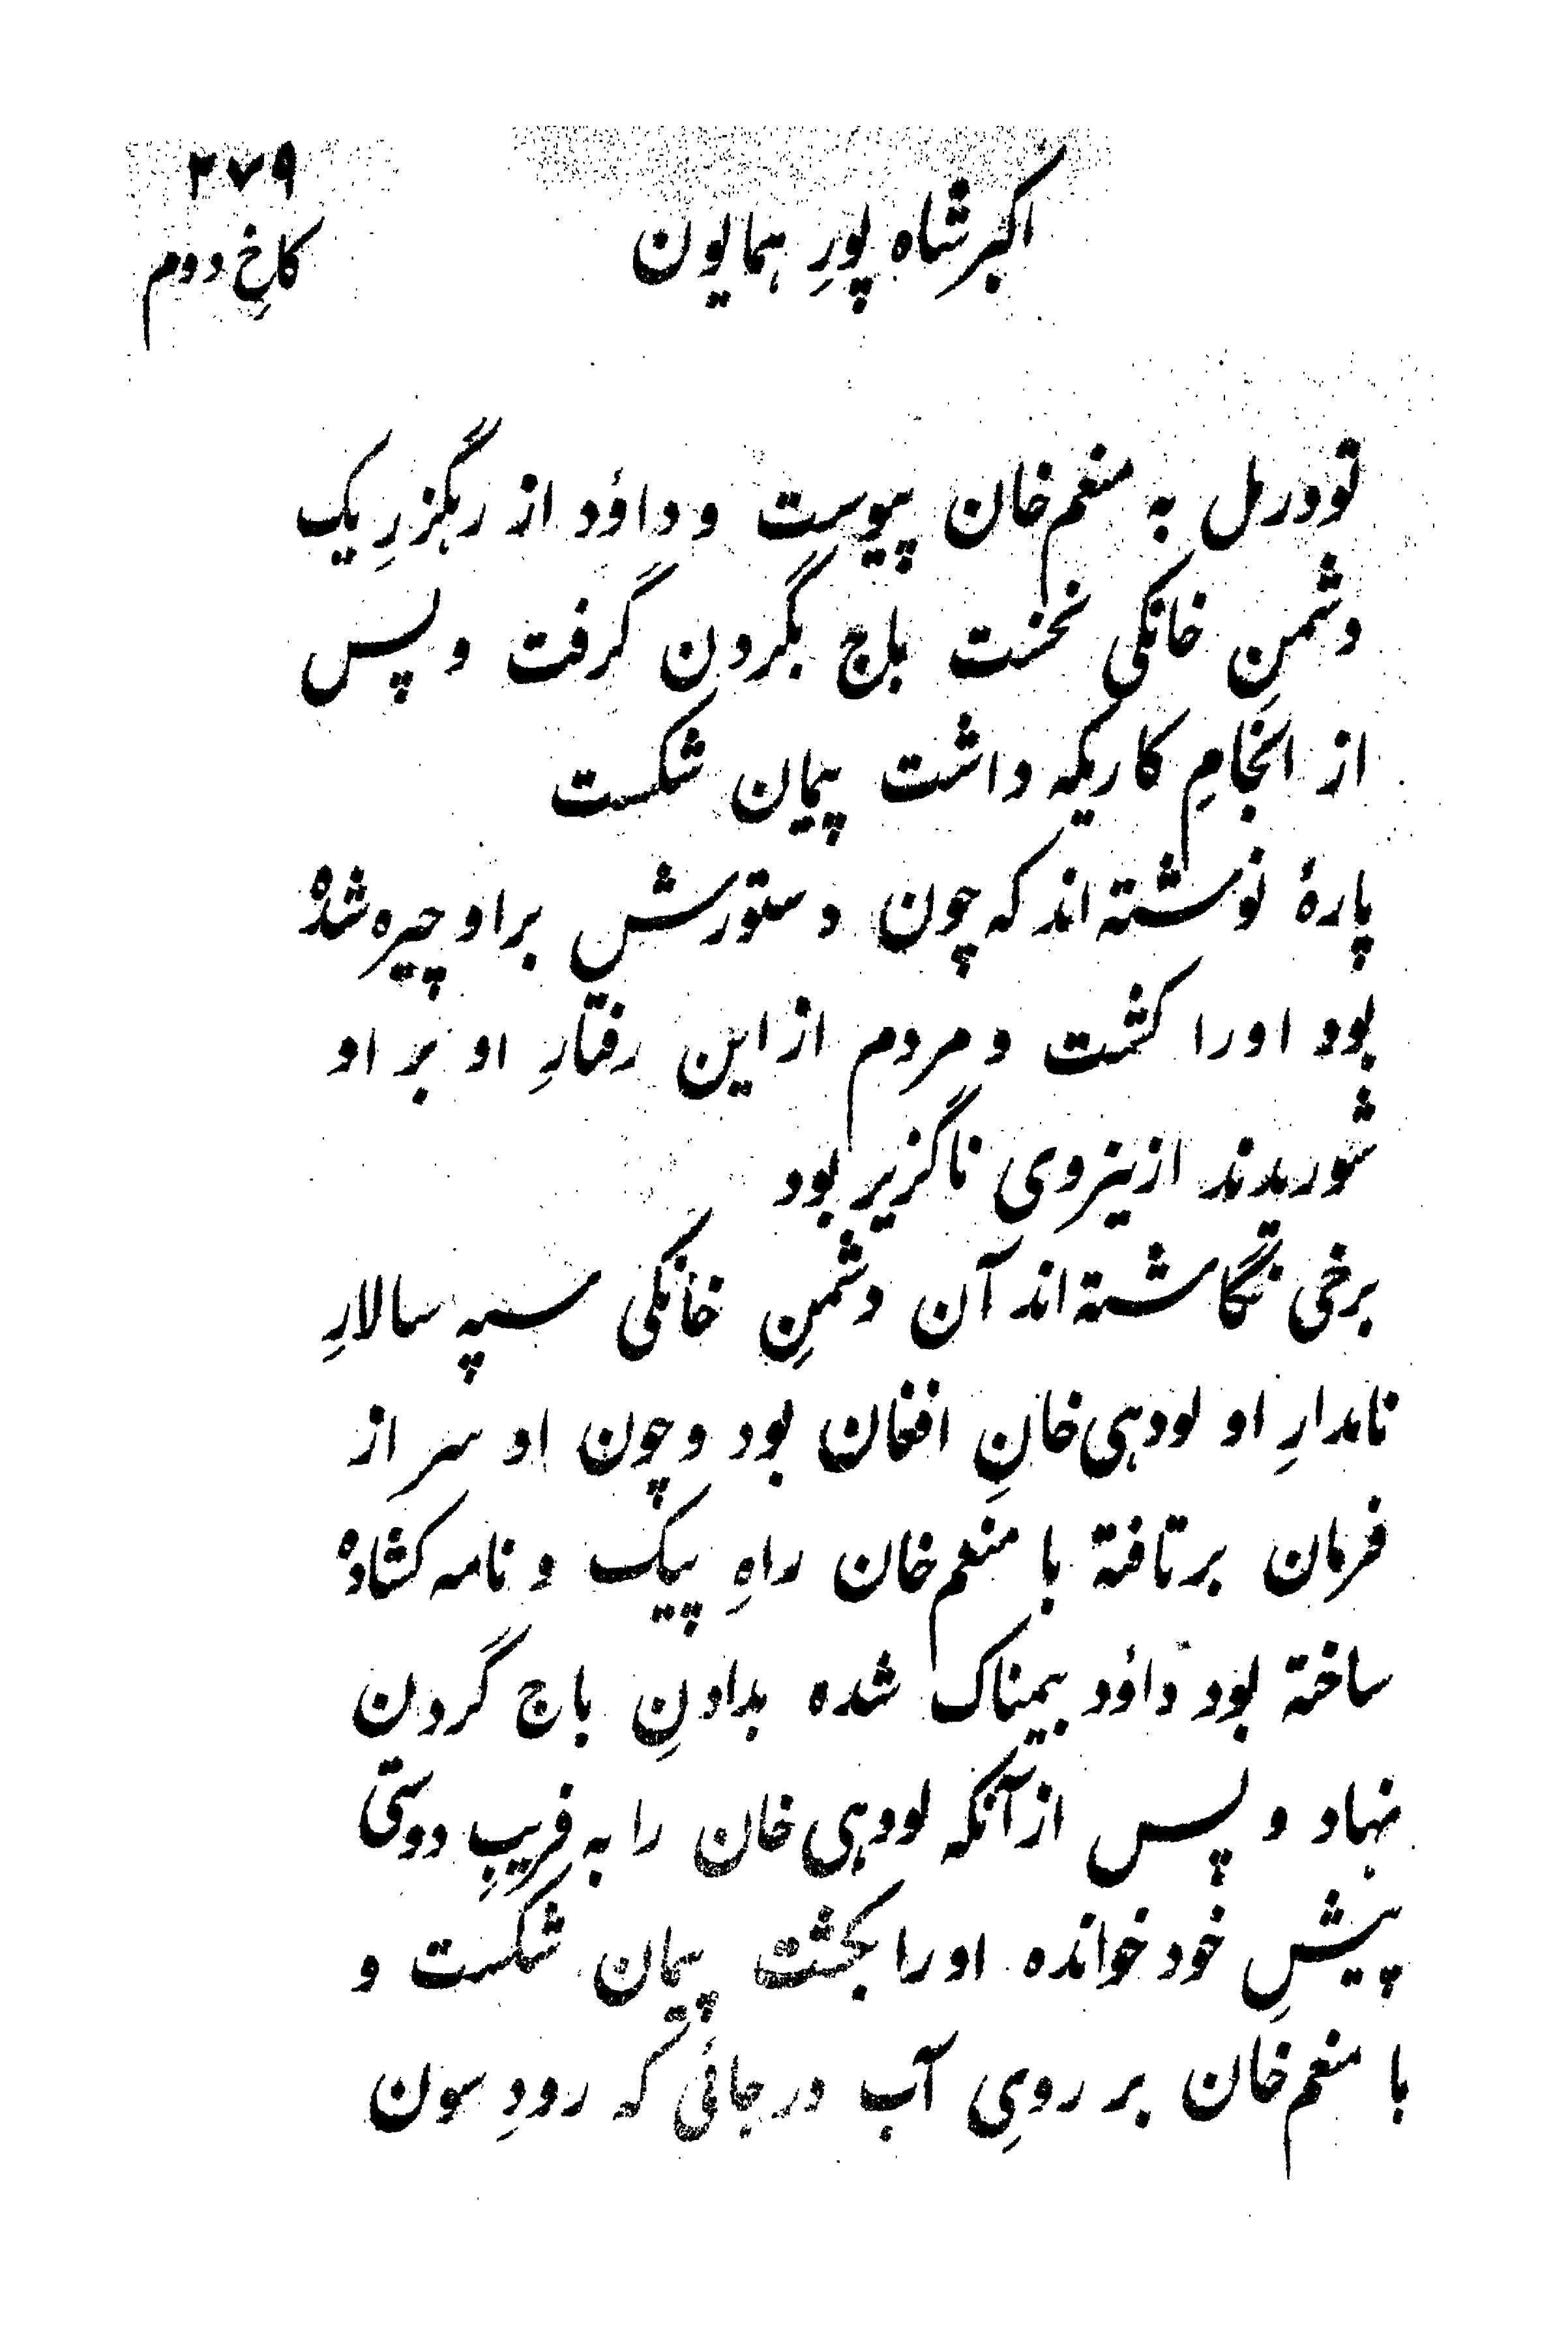 ۲۷۹
اکبرشاه پورِ همایون
کاخِ دوم
تودرمل به منعم‌خان پیوست و داؤد از رهگزرِ یک
دشمنِ خانگی نخست باج بگردن گرفت و پس
از انجامِ کاریکه داشت پیمان شکست
پارهٔ نوشته‌اند که چون دستورش بر او چیره شده
بود اورا کشت و مردم از این رفتارِ او بر او
شوریدند ازینروی ناگزیر بود
برخی نگاشته‌اند آن دشمنِ خانگی سپه سالارِ
نامدارِ او لودهی‌خانِ افغان بود و چون او سر از
فرمان برتافته با منعم‌خان راهِ پیک و نامه کشاده
ساخته بود داؤد بیمناک شده بدادنِ باج گردن
نهاد و پس ازآنکه لودهی‌خان را به فریبِ دوستی
پیشِ خود خوانده اورا بکشت پیمان شکست و
با منعم‌خان بر رویِ آب در جائی که رودِ سون